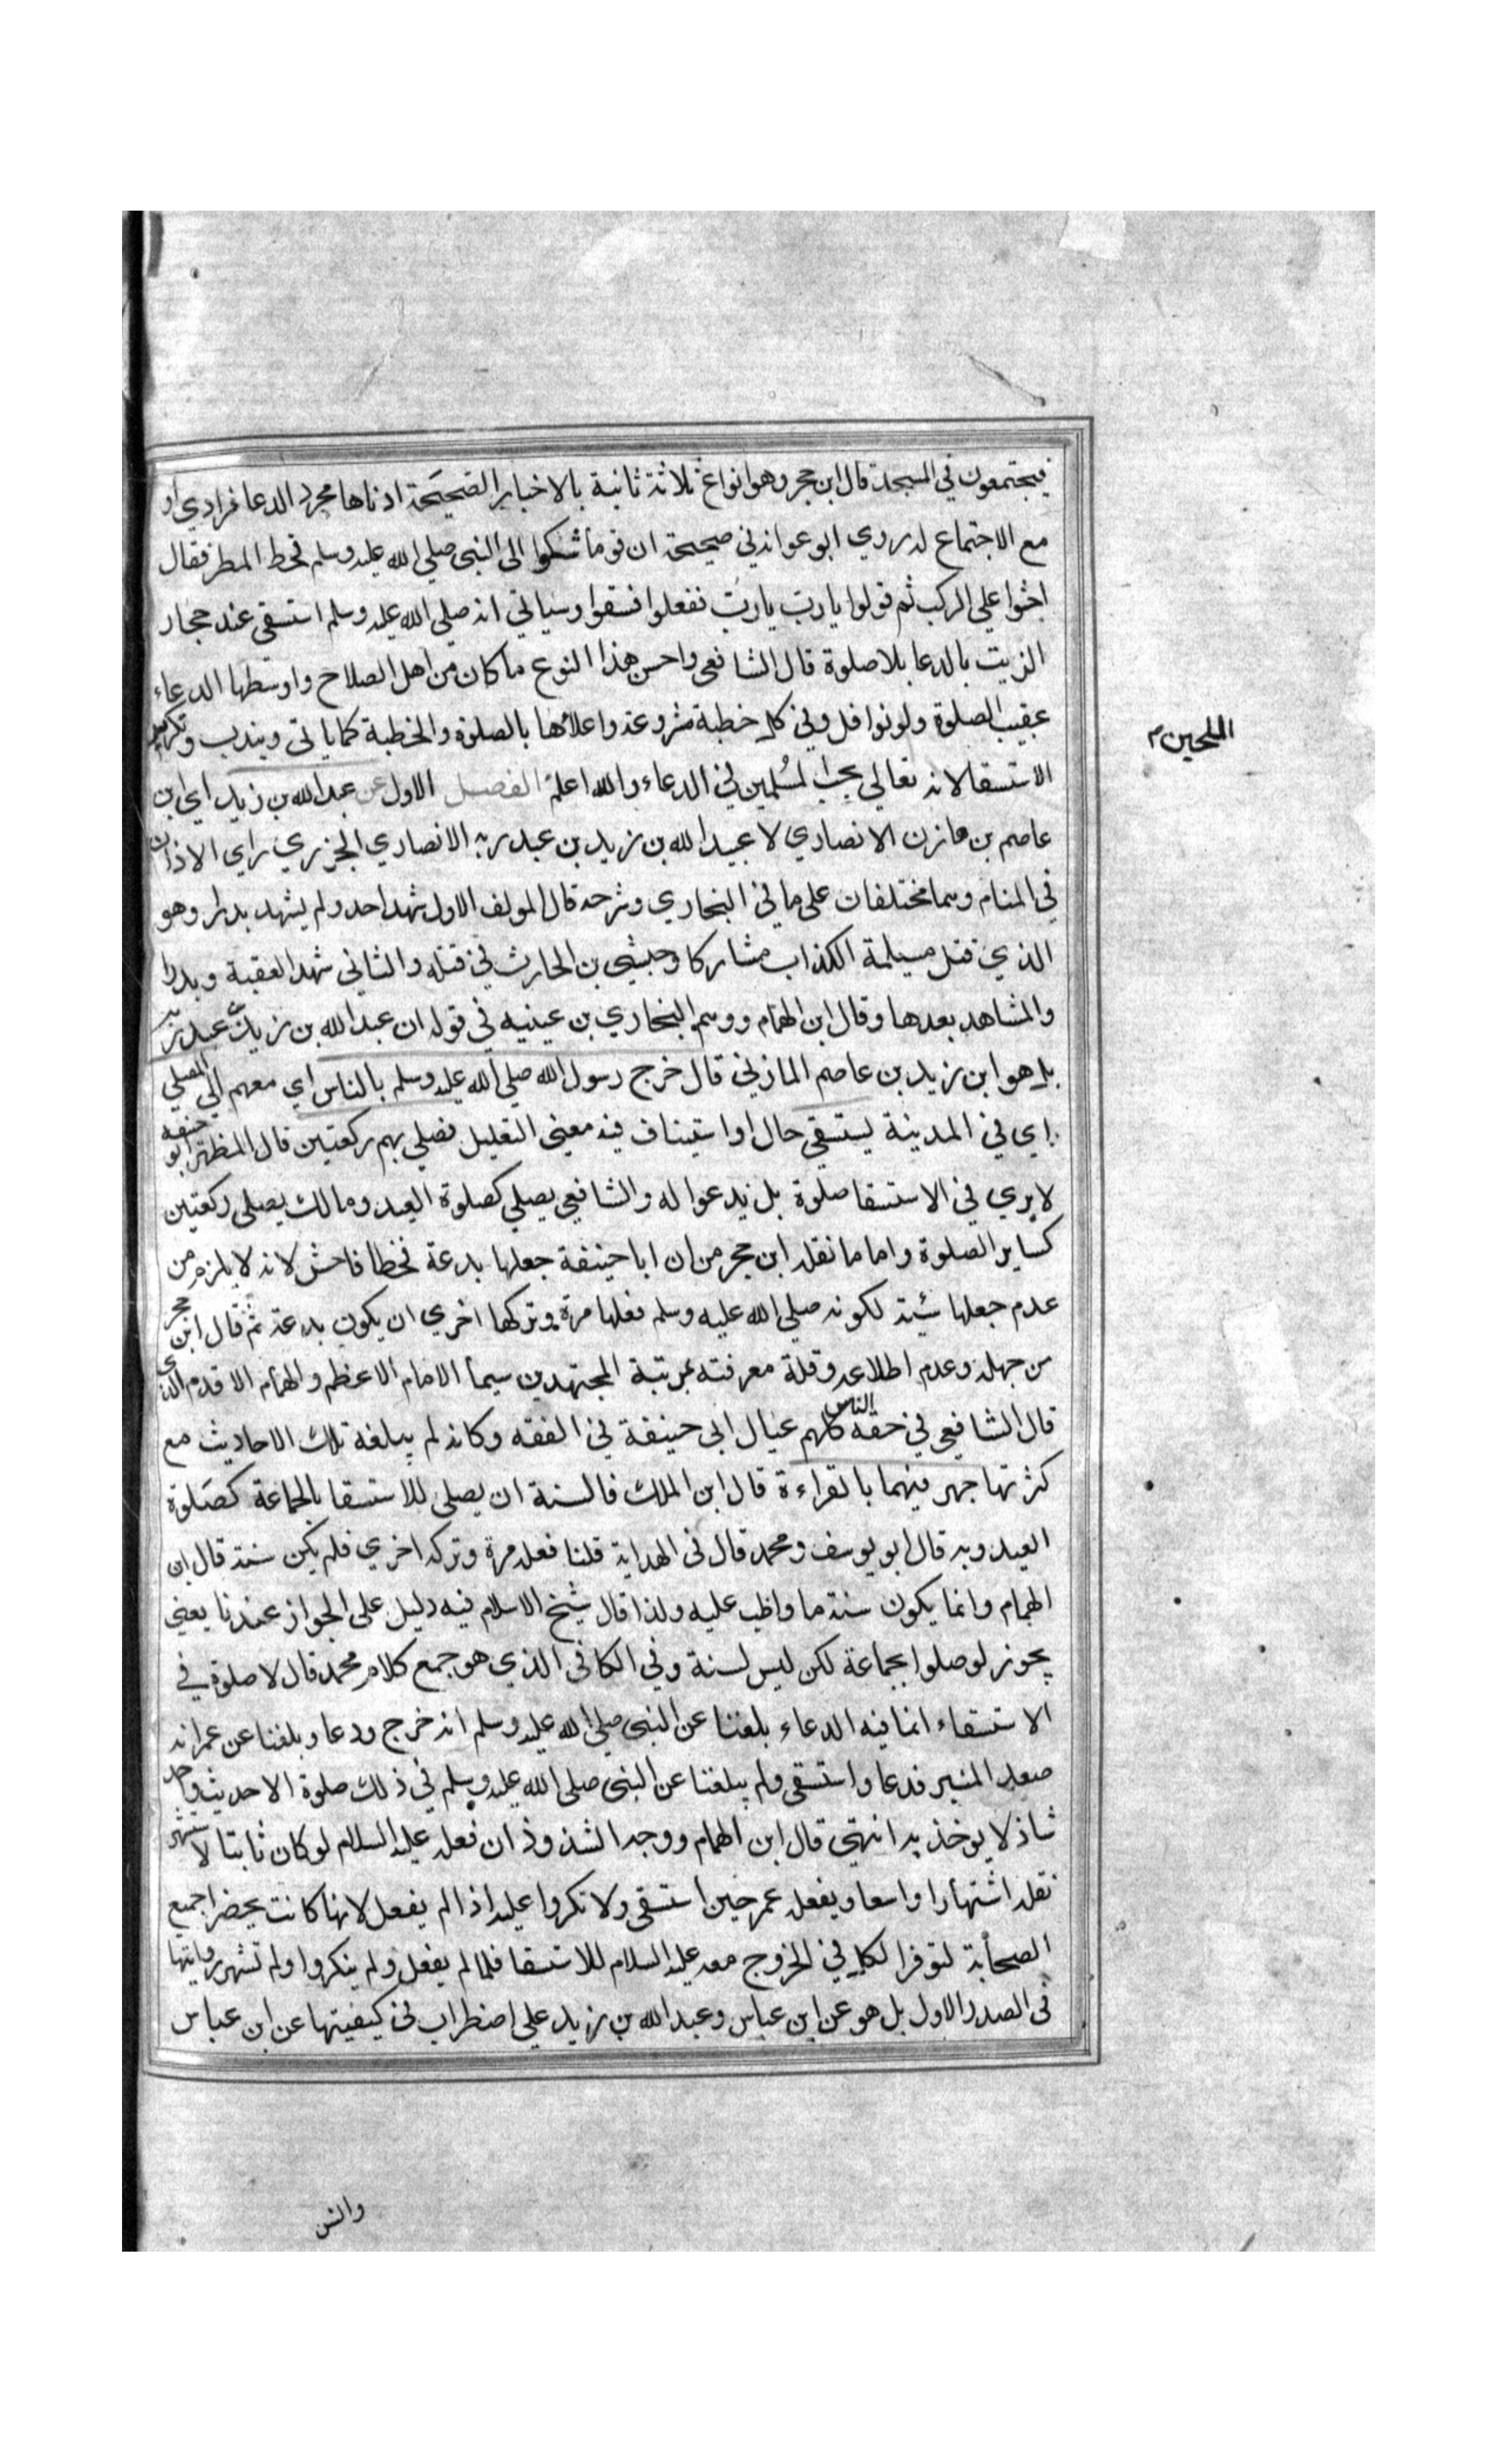 فيجتمعون في المسجد قال ابن حجر وهو انواع ثلاثة ثانية بالاخبار الصحيحة ادناها مجرد الدعا فرادي او
مع الاجتماع لدروي ابو عوانه في صحيحه ان قوما شكوا الى النبى صلي الله عليه وسلم قحط المطر فقال
اجثوا على الركب ثم قولوا يا رب يا رب ففعلوا فسقوا وسياتي انه صلي الله عليه وسلم استسقى عند حجار
الزيت بالدعا بلا صلوة قال الشافعي واحسن هذا النوع ما كان من اهل الصلاح واوسطها الدعاء
عقيب الصلوة ولو نوافل وفي كل خطبة مشروعة واعلاها بالصلوة والخطبة كما ياتي ويندب وتكرير
الملحين م
الاستسقا لانه تعالي يحب المسلمين في الدعاء والله اعلم الفصل الاول عن عبد الله بن زيد اي ابن
عاصم بن مازن الانصاري لا عبيد الله بن زيد بن عبد ربه الانصاري الجزري راي الاذان
في المنام وسما مختلفان على ما في البخاري وشرحه قال المولف الاول شهد احد ولم يشهد بدرا وهو
الذي قتل مسيلمة الكذاب مشاركا وحبشي بن الحارث في قتله والثاني شهد العقبة وبدرا
والمشاهد بعدها وقال ابن الهمام ووسم البخاري بن عينيه في قوله ان عبد الله بن زيد بن عبد ربه
بل هو ابن زيد بن عاصم المازني قال خرج رسول الله صلي الله عليه وسلم بالناس اي معهم الي المصلي
اي في المدينة يستسقي حال او استيناف فيه معنى التعليل فصلي بهم ركعتين قال المظهر ابو حنيفه
لا يري في الاستسقا صلوة بل يدعوا له والشافعي يصلي كصلوة العيد ومالك يصلى ركعتين
كساير الصلوة واما ما نقله ابن حجر من ان ابا حنيفة جعلها بدعة فخطا فاحش لانه لا يلزم من
عدم جعلها سنة لكونه صلي الله عليه وسلم فعلها مرة وتركها اخري ان يكون بدعة ثم قال ابن حجر
من جهله وعدم اطلاعه وقلة معرفته بمرتبة المجتهدين سيما الامام الاعظم والهمام الاقدم الذي
قال الشافعي في حقه الناس كلهم عيال ابي حنيفة في الفقه وكانه لم يبلغه تلك الاحاديث مع
كثرتها جهر فيهما بالقراءة قال ابن الملك فالسنة ان يصلي للاستسقا بالجماعة كصلوة
العيد وبه قال ابو يوسف ومحمد قال في الهداية قلنا فعله مرة وتركه اخري فلم يكن سنة قال ابن
الهمام وانما يكون سنة ما واظب عليه ولذا قال شيخ الاسلام فيه دليل على الجواز عندنا يعني
يجوز لو صلوا بجماعة لكن ليس لسنة وفي الكافى الذي هو جمع كلام محمد قال لا صلوة في
الاستسقاء انما فيه الدعاء بلغنا عن النبى صلي الله عليه وسلم انه خرج ودعا وبلغنا عن عمر انه
صعد المنبر فدعا واستسقى ولم يبلغنا عن النبى صلى الله عليه وسلم في ذلك صلوة الا حديث واحد
شاذ لا يوخذ به انتهى قال ابن الهمام ووجه الشذوذ ان فعله عليه السلام لو كان ثابتا لاشتهر
نقله اشتهارا واسعا ويفعله عمر حين استسقى ولا نكروا عليه اذا لم يفعل لانها كانت بحضر جميع
الصحابة لتوفر الكل في الخروج معه عليه السلام للاستسقا فلما لم يفعل ولم ينكروا ولم تشهر روايتها
في الصدر الاول بل هو عن ابن عباس وعبد الله بن زيد علي اضطراب في كيفيتها عن ابن عباس